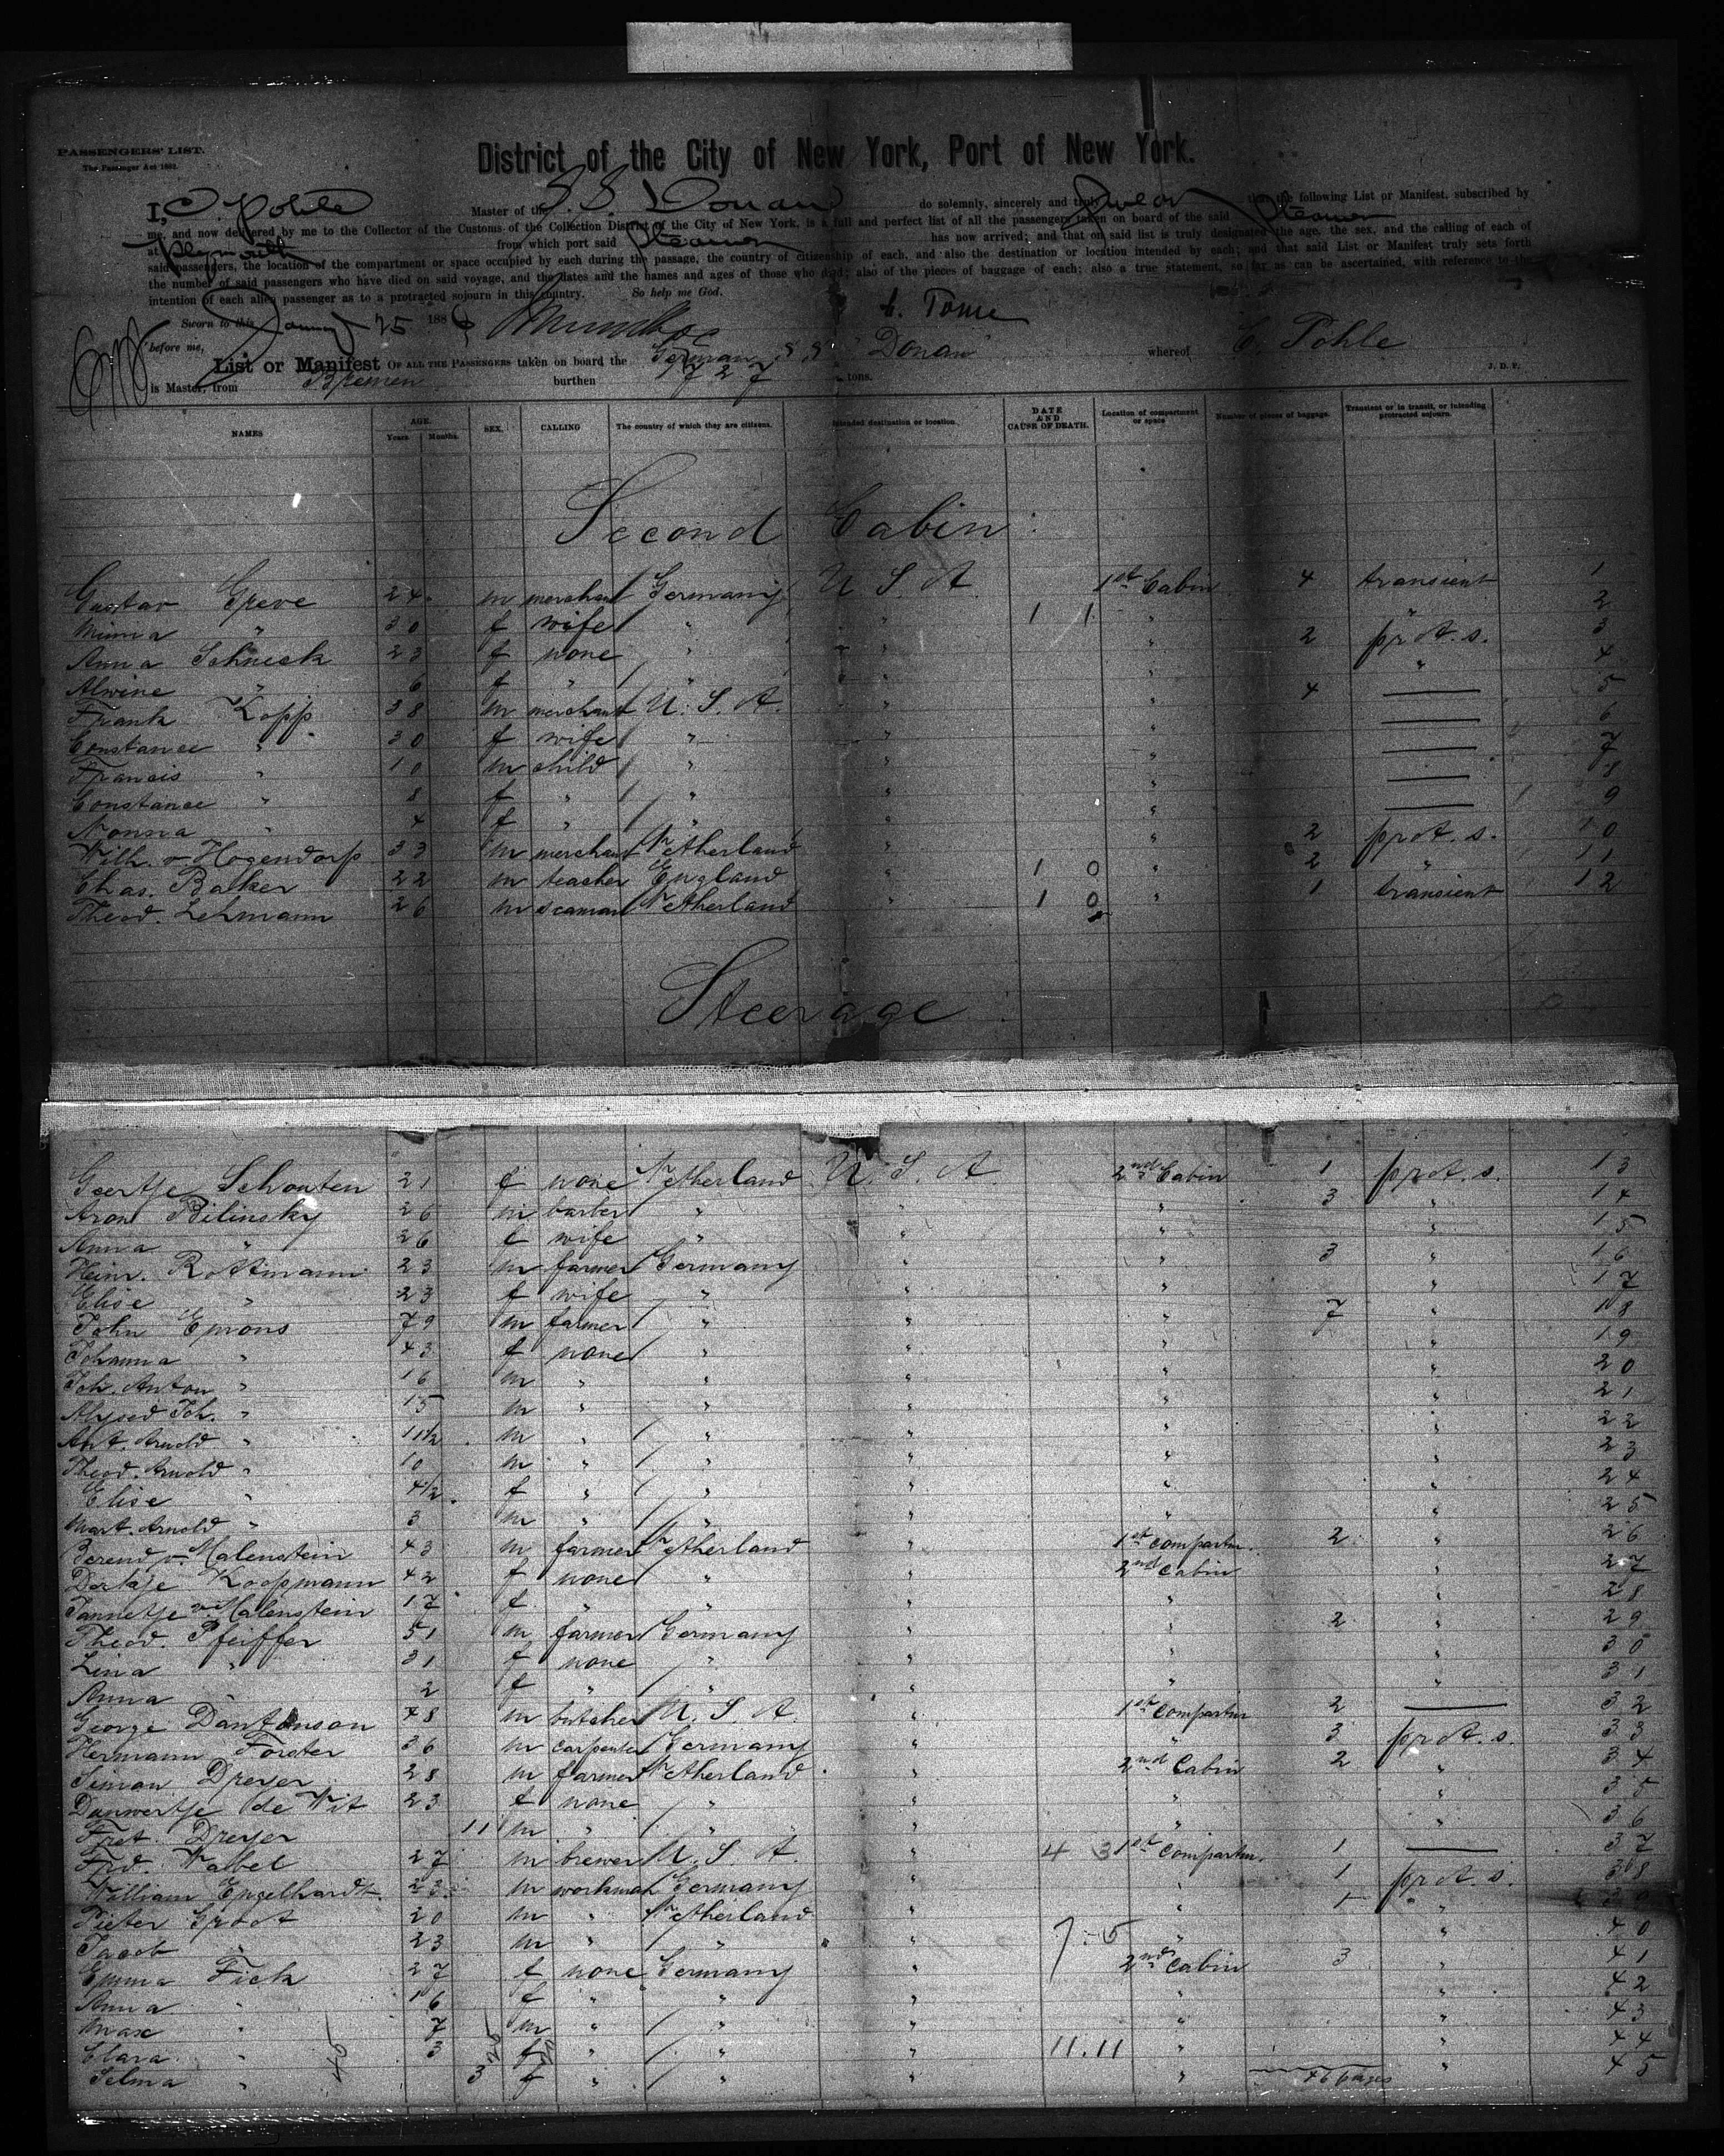 PASSENGERS' LIST.
The Passenger Act 1882.
District of the City of New York, Port of New York.
I, C. Pohle Master of the S.S. Donau do solemnly, sincerely and truly that the following List or Manifest, subscribed by
me, and now delivered by me to the Collector of the Customs of the Collection District of the City of New York, is a full and perfect list of all the passengers taken on board of the said Steamer
at Plymouth from which port said Steamer has now arrived; and that on said list is truly designated the age, the sex, and the calling of each of
said passengers, the location of the compartment or space occupied by each during the passage, the country of citizenship of each, and also the destination or location intended by each; and that said List or Manifest truly sets forth
the number of said passengers who have died on said voyage, and the dates and the names and ages of those who died; also of the pieces of baggage of each; also a true statement, so far as can be ascertained, with reference to the
intention of each alien passenger as to a protracted sojourn in this country. So help me God.
Sworn to this January 25 188
before me, C. Pohle
List or Manifest OF ALL THE PASSENGERS taken on board the German S S "Donau" whereof C. Pohle
is Master, from Bremen burthen 1727 tons. J. D. P.
NAMES AGE. Years Months. SEX. CALLING The country of which they are citizens. Intended destination or location. DATE AND CAUSE OF DEATH. Location of compartment or space Number of pieces of baggage. Transient or in transit, or intending protracted sojourn.
Second Cabin
Gustav Greve 24 m merchant Germany U S A 1st Cabin 4 transient 1
Minna " 30 f wife " " 1 1 " " 2
Anna Schneck 23 f none " " " 2 prot. s. 3
Alwine " 6 f " " " " " 4
Frank Kopp 38 m merchant U. S. A. " " 4 — 5
Constance " 30 f wife " " " — 6
Francis " 10 m child " " " — 7
Constance " 8 f " " " " — 8
Nonna " 4 f " " " " — 9
Wilh. v. Hogendorp 33 m merchant Netherland " " 2 prot. s. 10
Chas. Barker 22 m teacher England " 1 0 " 2 " 11
Theod. Lehmann 26 m seaman Netherland " 1 0 " 1 transient 12
Steerage
Geertje Schouten 21 f none Netherland U. S. A 2nd Cabin 1 prot. s. 13
Aron Bilinsky 26 m barber " " " 3 " 14
Anna " 26 f wife " " " " 15
Heinr. Rottmann 23 m farmer Germany " " 3 " 16
Elise " 23 f wife " " " " 17
John Emons 79 m farmer " " " 7 " 18
Johanna " 43 f none " " " " 19
Joh. Anton " 16 m " " " " " 20
Joh. " 15 m " " " " " 21
Ant. Arnold " 11½ m " " " " " 22
Theod. Arnold " 10 m " " " " " 23
Elise " 4½ f " " " " " 24
Mart. Arnold " 3 m " " " " " 25
Berend v. Malenstein 43 m farmer Netherland " 1st compartm. 2 " 26
Koopmann 42 f none " " 2nd Cabin " 27
Jannetje v. Malenstein 17 f " " " " " 28
Theod. Pfeiffer 51 m farmer Germany " " 2 " 29
Lina " 31 f none " " " " 30
Anna " 2 f " " " " " 31
George Dantonson 48 m butcher U. S. A. " 1st compartm 2 — 32
Hermann Forster 36 m carpenter Germany " " 3 prot. s. 33
Simon Dreyer 28 m farmer Netherland " 2nd Cabin 2 " 34
de Wit 23 f none " " " " 35
Dreyer 11 m " " " " " 36
Frd. Nabel 27 m brewer U. S. A. " 4 3 1st compartm. 1 — 37
William Engelhardt 23 m workman Germany " " 1 prot. s. 38
Pieter Groot 20 m " Netherland " " 1 " 39
Jacob " 23 m " " " 7-5 " " 40
Emma Fick 27 f none Germany " 2nd Cabin 3 " 41
Anna " 16 f " " " " " 42
Max " 7 m " " " " " 43
Clara " 3 f " " " 11.11 " " 44
Selma " 3 f " " " " " 45
45